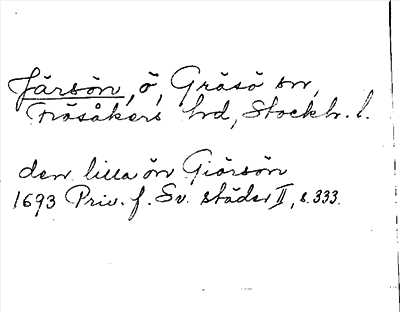 Järsön, ö, Gräsö sn,
Frösåkers hd, Stockh. l.
den lilla ön Giörsön
1693 Priv. f. Sv. städer II, s. 333.